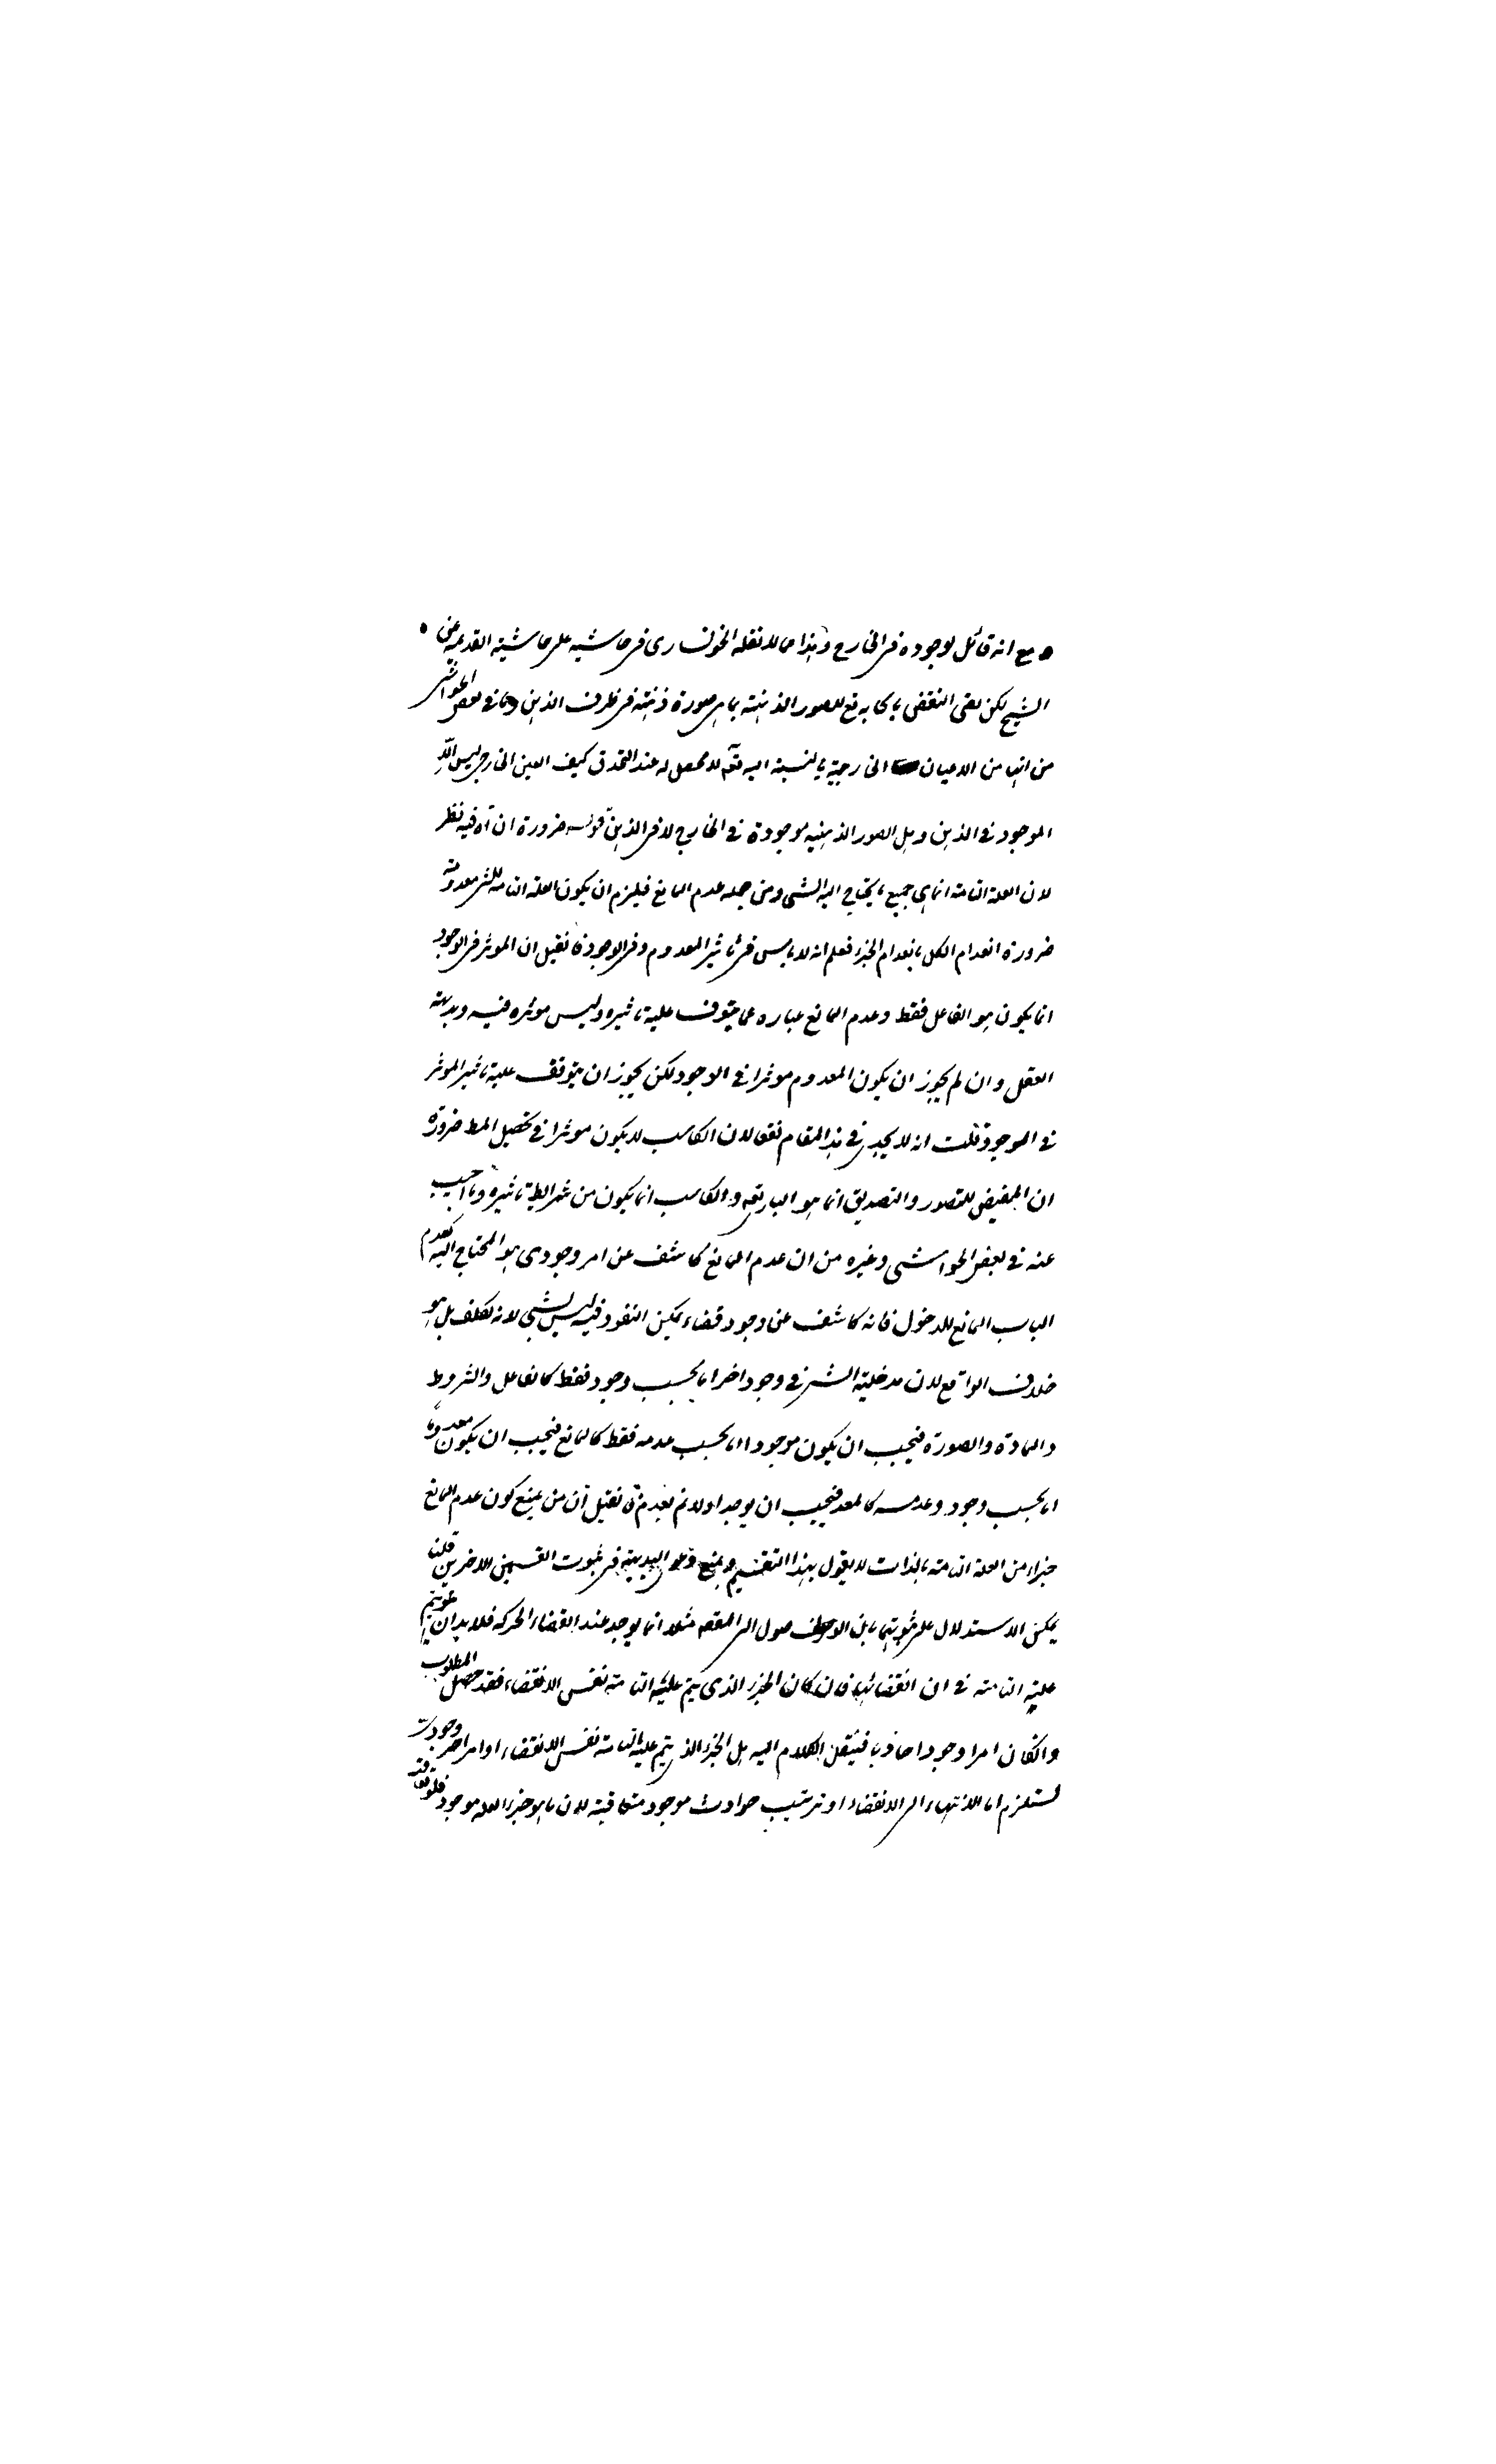 مع انه قائل بوجوده فى الخارج وهذا مما لا نقله الخونسارى فى حاشيه على حاشية القديمه عن
الشيخ لكن بقى النقض بحاله مع الصور الذهنية بما هى صورة ذهنية فى ظرف الذهن وما فى بعض الحواشى
من انها من الاعيان الخارجية بالنسبة اليه تعم لا محصل له عند التحقيق كيف العين الخارجى ليس الا
الموجود فى الذهن وهل الصور الذهنية موجودة فى الخارج لا فى الذهن قوله ضرورة ان آه فيه نظر
لان العلة التامة انما هى جميع ما يحتاج اليه الشى ومن جمله عدم المانع فيلزم ان يكون العلة التامة للشى معدومة
ضرورة انعدام الكل بانعدام الجزء فعلم انه لا باس فى تاثير المعدوم فى الموجود فما نقيل ان الموثر فى الوجود
انما يكون هو الفاعل فقط وعدم المانع عباره عما يتوقف عليه تاثيره وليس موثره فيه وبديهة
العقل وان لم يجوز ان يكون المعدوم موثرا فى الوجود لكن يجوز ان يتوقف عليه تاثير الموثر
فى الموجود قلت انه لا يجدى فى هذا المقام نفعا لان الكاسب لا يكون موثرا فى تحصيل المط ضرورة
ان المفيض للتصور والتصديق انما هو البارى تعم والكاسب انما يكون من شرايط تاثيره وما اجيب
عنه فى بعض الحواشى وغيره من ان عدم المانع كاشف عن امر وجودى هو المحتاج اليه كعدم
الباب المانع للدخول فانه كاشف عن وجود فضاء يمكن النفوذ فيه ليس بشى لانه تكلف بل هو
خلاف الواقع لان مدخلية الشى فى وجود اخر اما بحسب وجود فقط كالفاعل والشروط
والمادة والصورة فيجب ان يكون موجودا اما بحسب عدمه فقط كالمانع فيجب ان يكون معدوما
اما بحسب وجوده وعدمه كالمعد فيجب ان يوجد اولا ثم يعدم فما نقيل ان من يمنع كون عدم المانع
جزاء من العلة التامة بالذات لا يقول بهذا التقسيم ويمنع دعوى البديهة فى ثبوت القسمين الاخرين قلنا
يمكن الاستدلال على ثبوتهما بان الوصول الى المقصد مثلا انما يوجد عند انقضاء الحركه فلا بد ان يتم
علية التامة فى ان انقضائها فان كان الجزء الذى يتم علية التامة نفس الانقضاء فقد حصل المطلوب
وانكان امرا وجودا حادثا فينقل الكلام اليه هل الجزء الذى يتم علية التامة نفس الانقضاء او امر اخر وجودى
يستلزم اما الانتهاء الى الانقضاء او ترتيب حوادث موجود متعاقبة لان ما هو جزء العلة موجود